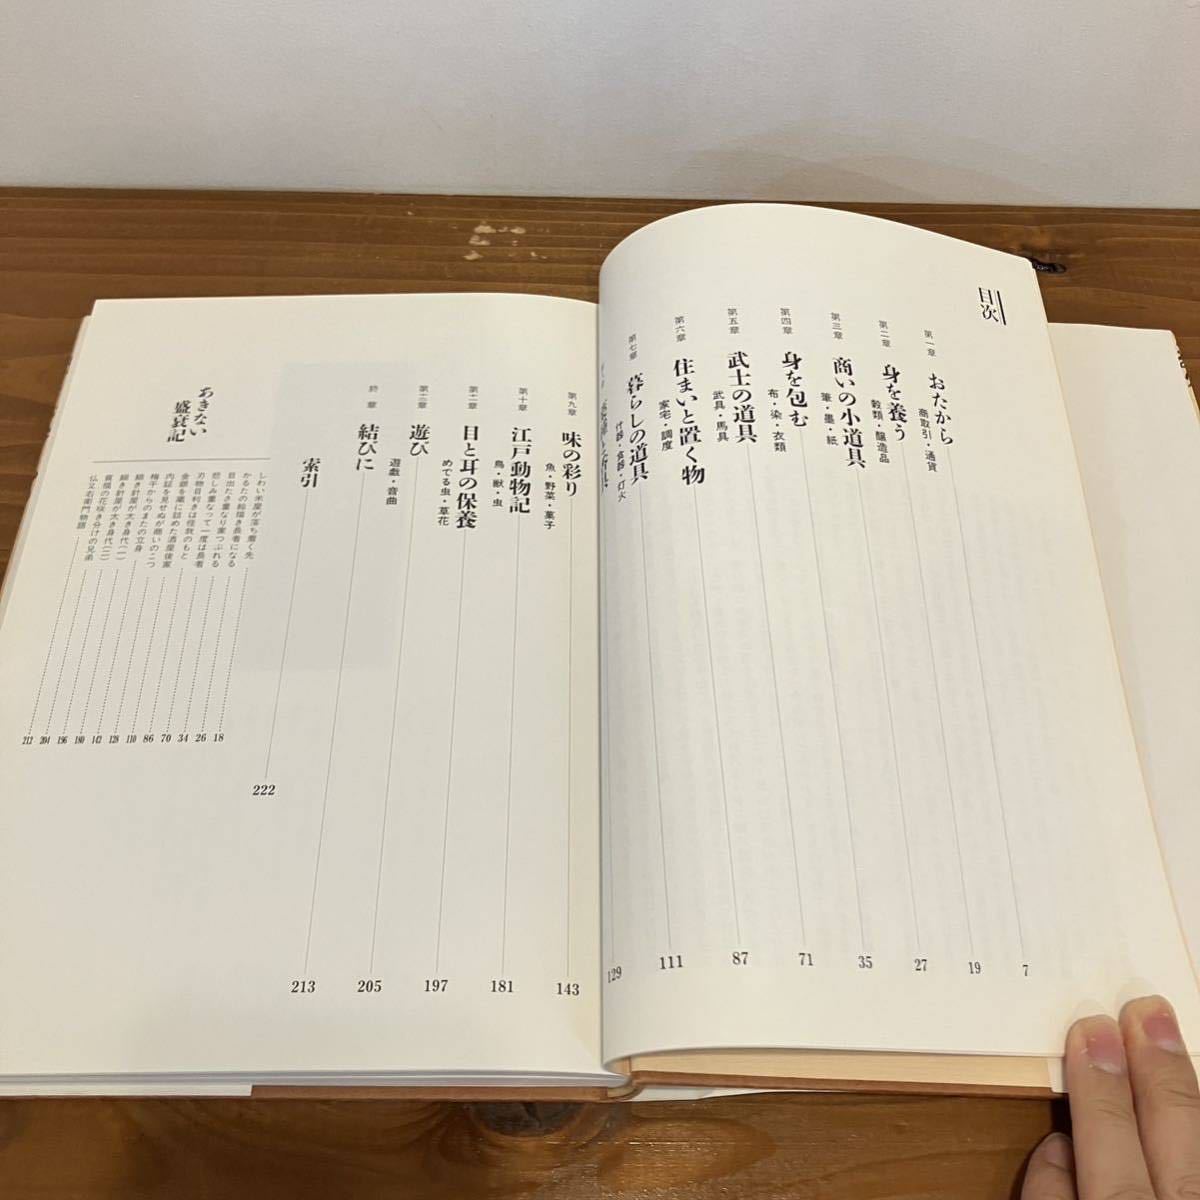 目次
第一章 おたから 商取引・通貨 7
第二章 身を養う 穀類・醸造品 19
第三章 商いの小道具 筆・墨・紙 27
第四章 身を包む 布・染・衣類 35
第五章 武士の道具 武具・馬具 71
第六章 住まいと置く物 家宅・調度 87
第七章 暮らしの道具 什器・食器・灯火 111
129
第九章 味の彩り 魚・野菜・菓子 143
第十章 江戸動物記 鳥・獣・虫 181
第十一章 目と耳の保養 めでる虫・草花 197
第十二章 遊び 遊戯・音曲 205
終章 結びに 213
索引 222
あきない
盛衰記
しわい米屋が落ち着く先 18
かるたの絵描き長者になる 26
目出たさ重なり家つぶれる 34
悲しみ重なって一度は長者 70
刃物目利きは怪我のもと 86
金銀を蔵に詰めた酒屋後家 110
内証を見せぬが商いのこつ 128
梅干からのまたの立身 142
細き針屋が太き身代(一) 180
細き針屋が太き身代(二) 196
貧福の花咲き分けの兄弟 204
仏又右衛門物語 212